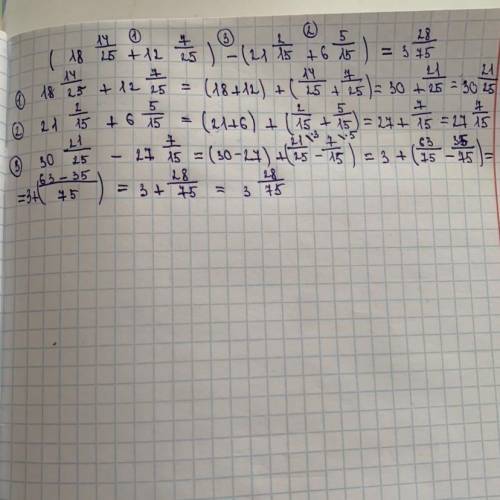 (18 14/25 + 12 7/25) - (21 2/15 + 6 5/15) = 3 28/75
① ③ ②
① 18 14/25 + 12 7/25 = (18+12) + (14/25 + 7/25) = 30 + 21/25 = 30 21/25
② 21 2/15 + 6 5/15 = (21+6) + (2/15 + 5/15) = 27 + 7/15 = 27 7/15
③ 30 21/25 - 27 7/15 = (30-27) + (21/25 ·3 - 7/15 ·5) = 3 + (63/75 - 35/75) =
= 3 + (63-35/75) = 3 + 28/75 = 3 28/75